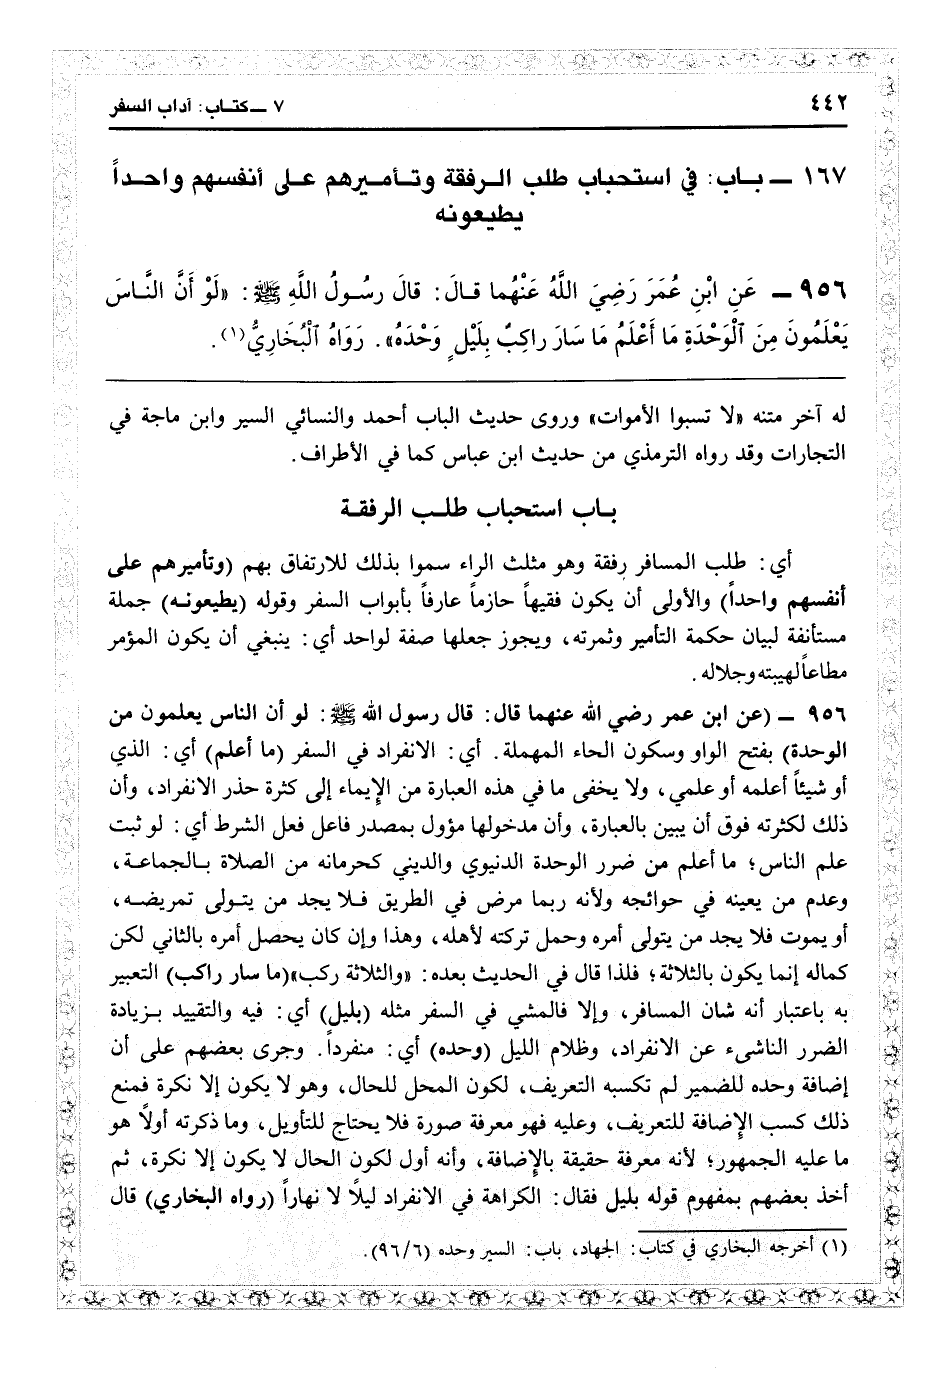 ٤٤٢
٧ ــ كتاب: آداب السفر
١٦٧ ــ باب: في استحباب طلب الرفقة وتأميرهم على أنفسهم واحداً
يطيعونه
٩٥٦ ــ عَنِ ابْنِ عُمَرَ رَضِيَ اللَّهُ عَنْهُما قالَ: قالَ رسُولُ اللَّهِ ﷺ: «لَوْ أَنَّ النَّاسَ
يَعْلَمُونَ مِنَ ٱلْوَحْدَةِ مَا أَعْلَمُ مَا سَارَ راكِبٌ بِلَيْلٍ وَحْدَهُ». رَوَاهُ ٱلْبُخَارِيُّ(١).
له آخر متنه «لا تسبوا الأموات» وروى حديث الباب أحمد والنسائي السير وابن ماجة في
التجارات وقد رواه الترمذي من حديث ابن عباس كما في الأطراف.
باب استحباب طلب الرفقة
أي: طلب المسافر رفقة وهو مثلث الراء سموا بذلك للارتفاق بهم (وتأميرهم على
أنفسهم واحداً) والأولى أن يكون فقيهاً حازماً عارفاً بأبواب السفر وقوله (يطيعونه) جملة
مستأنفة لبيان حكمة التأمير وثمرته، ويجوز جعلها صفة لواحد أي: ينبغي أن يكون المؤمر
مطاعاً لهيبته وجلاله.
٩٥٦ ــ (عن ابن عمر رضي الله عنهما قال: قال رسول الله ﷺ: لو أن الناس يعلمون من
الوحدة) بفتح الواو وسكون الحاء المهملة. أي: الانفراد في السفر (ما أعلم) أي: الذي
أو شيئاً أعلمه أو علمي، ولا يخفى ما في هذه العبارة من الإيماء إلى كثرة حذر الانفراد، وأن
ذلك لكثرته فوق أن يبين بالعبارة، وأن مدخولها مؤول بمصدر فاعل فعل الشرط أي: لو ثبت
علم الناس؛ ما أعلم من ضرر الوحدة الدنيوي والديني كحرمانه من الصلاة بالجماعة،
وعدم من يعينه في حوائجه ولأنه ربما مرض في الطريق فلا يجد من يتولى تمريضه،
أو يموت فلا يجد من يتولى أمره وحمل تركته لأهله، وهذا وإن كان يحصل أمره بالثاني لكن
كماله إنما يكون بالثلاثة؛ فلذا قال في الحديث بعده: «والثلاثة ركب»(ما سار راكب) التعبير
به باعتبار أنه شان المسافر، وإلا فالمشي في السفر مثله (بليل) أي: فيه والتقييد بزيادة
الضرر الناشىء عن الانفراد، وظلام الليل (وحده) أي: منفرداً. وجرى بعضهم على أن
إضافة وحده للضمير لم تكسبه التعريف، لكون المحل للحال، وهو لا يكون إلا نكرة فمنع
ذلك كسب الإضافة للتعريف، وعليه فهو معرفة صورة فلا يحتاج للتأويل، وما ذكرته أولاً هو
ما عليه الجمهور؛ لأنه معرفة حقيقة بالإضافة، وأنه أول لكون الحال لا يكون إلا نكرة، ثم
أخذ بعضهم بمفهوم قوله بليل فقال: الكراهة في الانفراد ليلاً لا نهاراً (رواه البخاري) قال
(١) أخرجه البخاري في كتاب: الجهاد، باب: السير وحده (٩٦/٦).